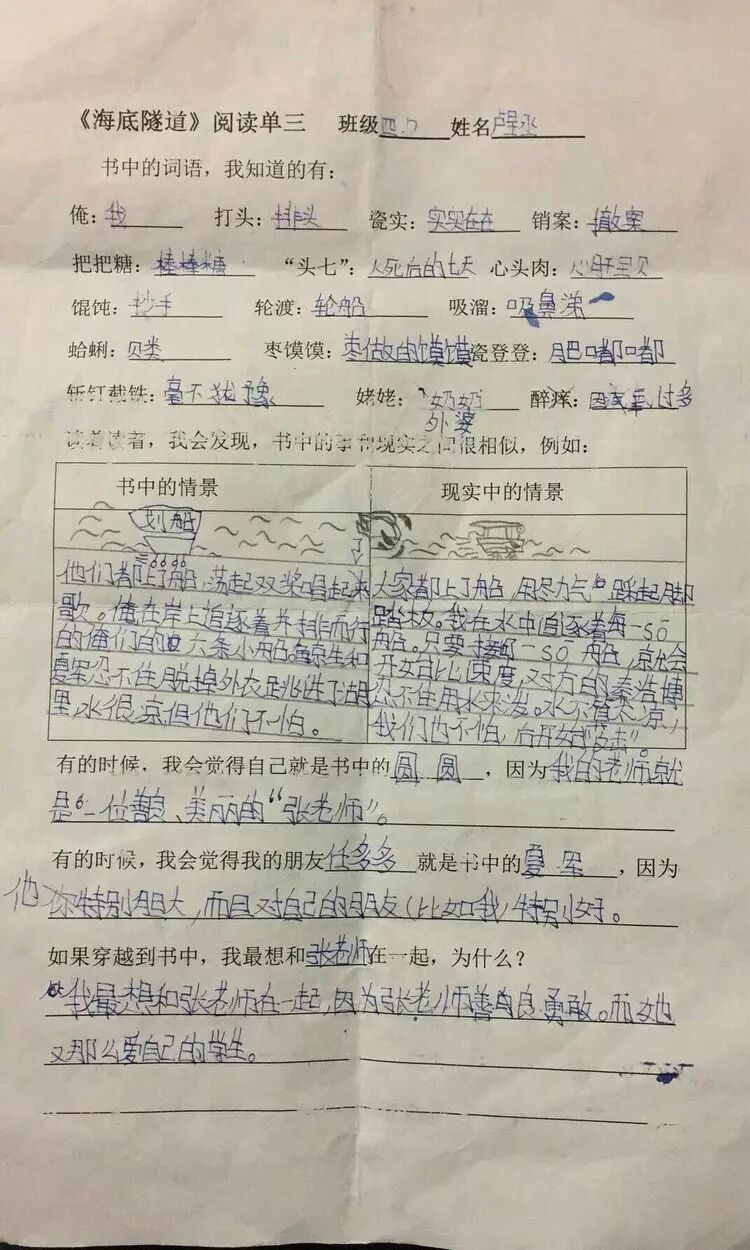 《海底隧道》阅读单三 班级四.
书中的词语，我知道的有：
俺：我 打头：排头 瓷实：实实在在 销案：撤案
把把糖：棒棒糖 “头七”：人死后的七天 心头肉：心肝宝贝
馄饨：抄手 轮渡：轮船 吸溜：吸鼻涕
蛤蜊：贝类 枣馍馍：枣做的馍馍 瓷登登：肥嘟嘟
斩钉截铁：毫不犹豫 姥姥：奶奶 醉痒：因氧过多
外婆
读着读着，我会发现，书中的事和现实之间很相似，例如：
书中的情景 现实中的情景
划船
他们都上了船，荡起双桨唱起来 大家都上了船，用尽力气踩起脚
歌。俺在岸上追逐着并排而行 踏板。我在水中追逐着每一SO
的俺们的六条小船。京生和 船。只要接近一SO船，就会
夏军忍不住脱掉外衣跳进了湖 开始比速度，对方的秦浩博
里，水很凉但他们不怕。 忍不住用水来泼。水不算太凉，
我们也不怕，后开始“攻击”。
有的时候，我会觉得自己就是书中的圆圆，因为我的老师就
是一位善良、美丽的“张老师”。
有的时候，我会觉得我的朋友任多多就是书中的夏军，因为
他特别胆大，而且对自己的朋友（比如我）特别好。
如果穿越到书中，我最想和张老师在一起，为什么？
我最想和张老师在一起，因为张老师善良勇敢。而她
又那么爱自己的学生。